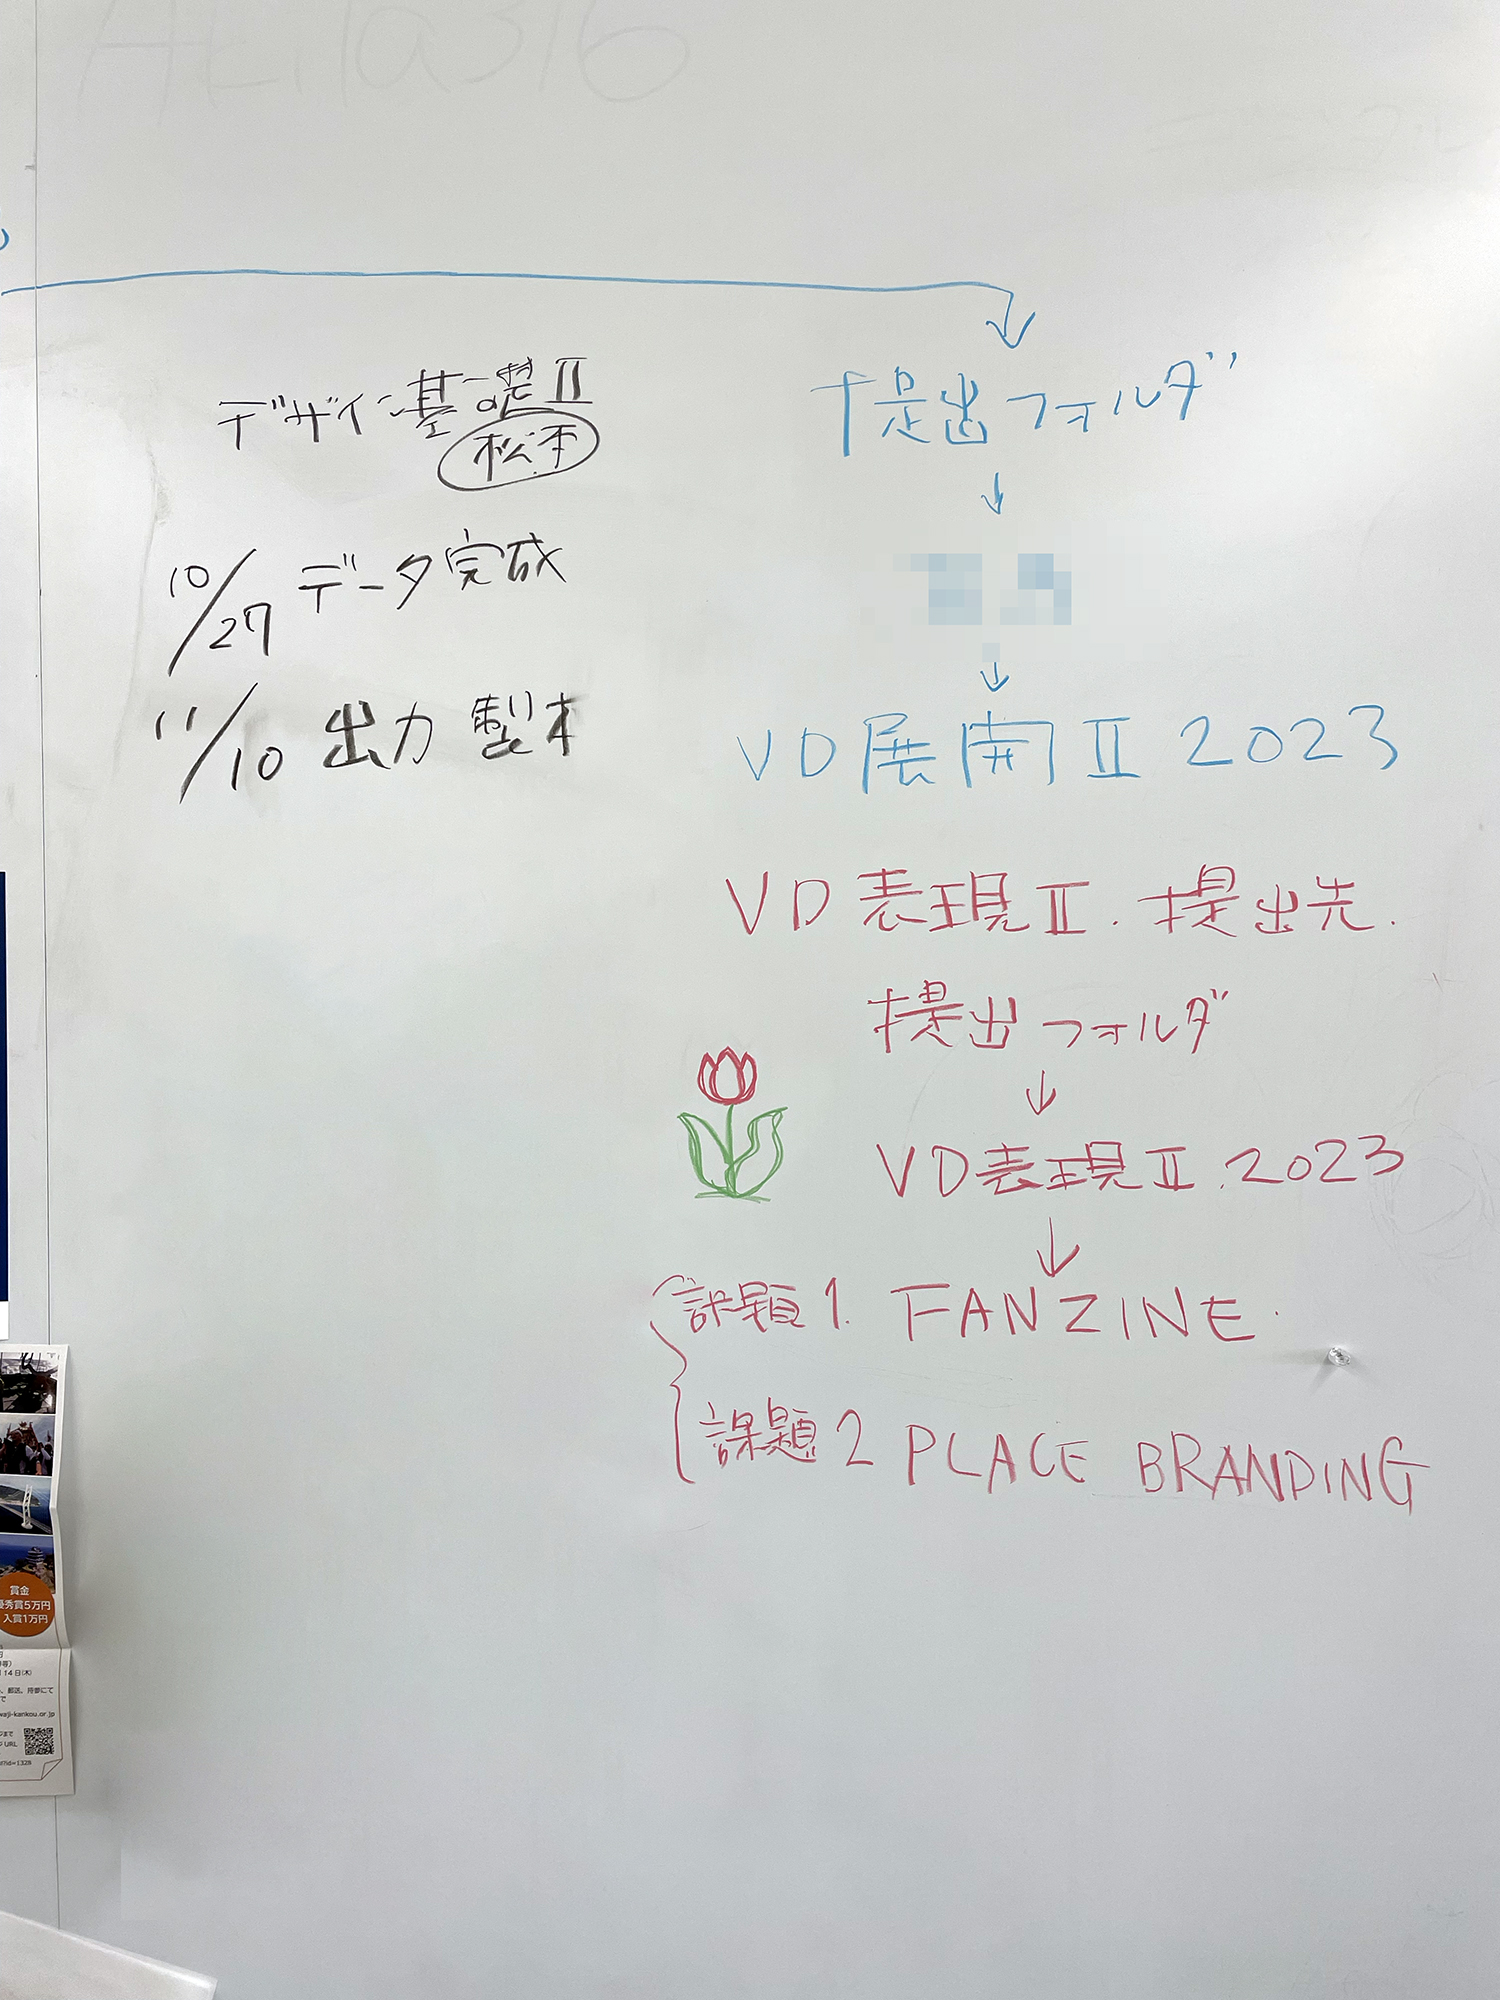 デザイン基礎Ⅱ
松本
10/27 データ完成
11/10 出力 製本
提出フォルダ
↓
↓
VD展開Ⅱ 2023
VD表現Ⅱ. 提出先.
提出フォルダ
↓
VD表現Ⅱ. 2023
↓
課題1. FANZINE.
課題2 PLACE BRANDING
賞金
優秀賞5万円
入賞1万円
14日(木)
郵送、持参にて
waji-kankou.or.jp
URL
?id=1328